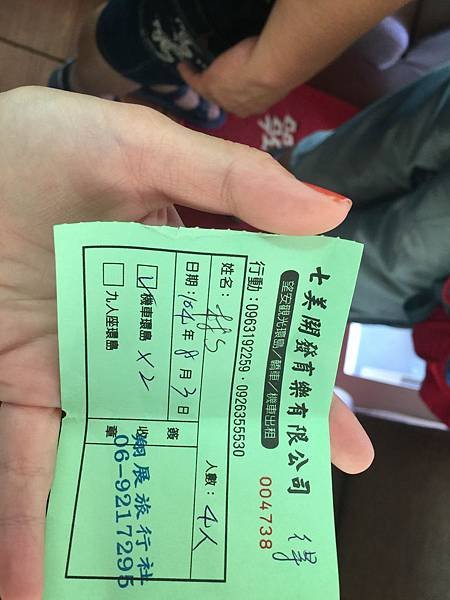 七美開發育樂有限公司
004738
望安觀光環島／轎車／機車出租
行動：0963192259・0926355530
姓名：
人數：4人
日期：104年8月3日
機車環島 X2
九人座環島
簽收章
翔展旅行社
06-9217295
發